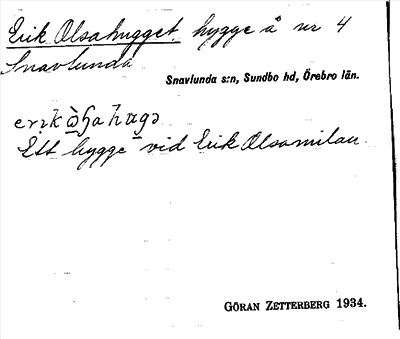 Erik Olsahugget hygge å nr 4
Snavlunda
Snavlunda s:n, Sundbo hd, Örebro län.
Ett hygge vid Erik Olsamilan.
GÖRAN ZETTERBERG 1934.